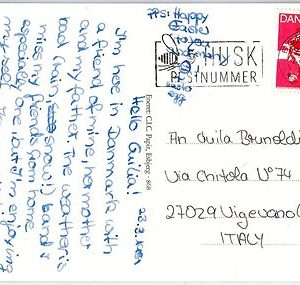 PS: Happy
Easter
HUSK
POSTNUMMER
DAN
23.3.1989
Hello Guilia!
I'm here in Danmark with
a friend of mine, her mother
and my father. The weather is
bad (rain, snow) and I
miss my friends from home
especially one, but I'm enjoying
my self.
Eneret: CLC Papir, Esbjerg - 868
An Guila Brunoldi
Via Chitola N° 74
27029 Vigevano (
ITALY